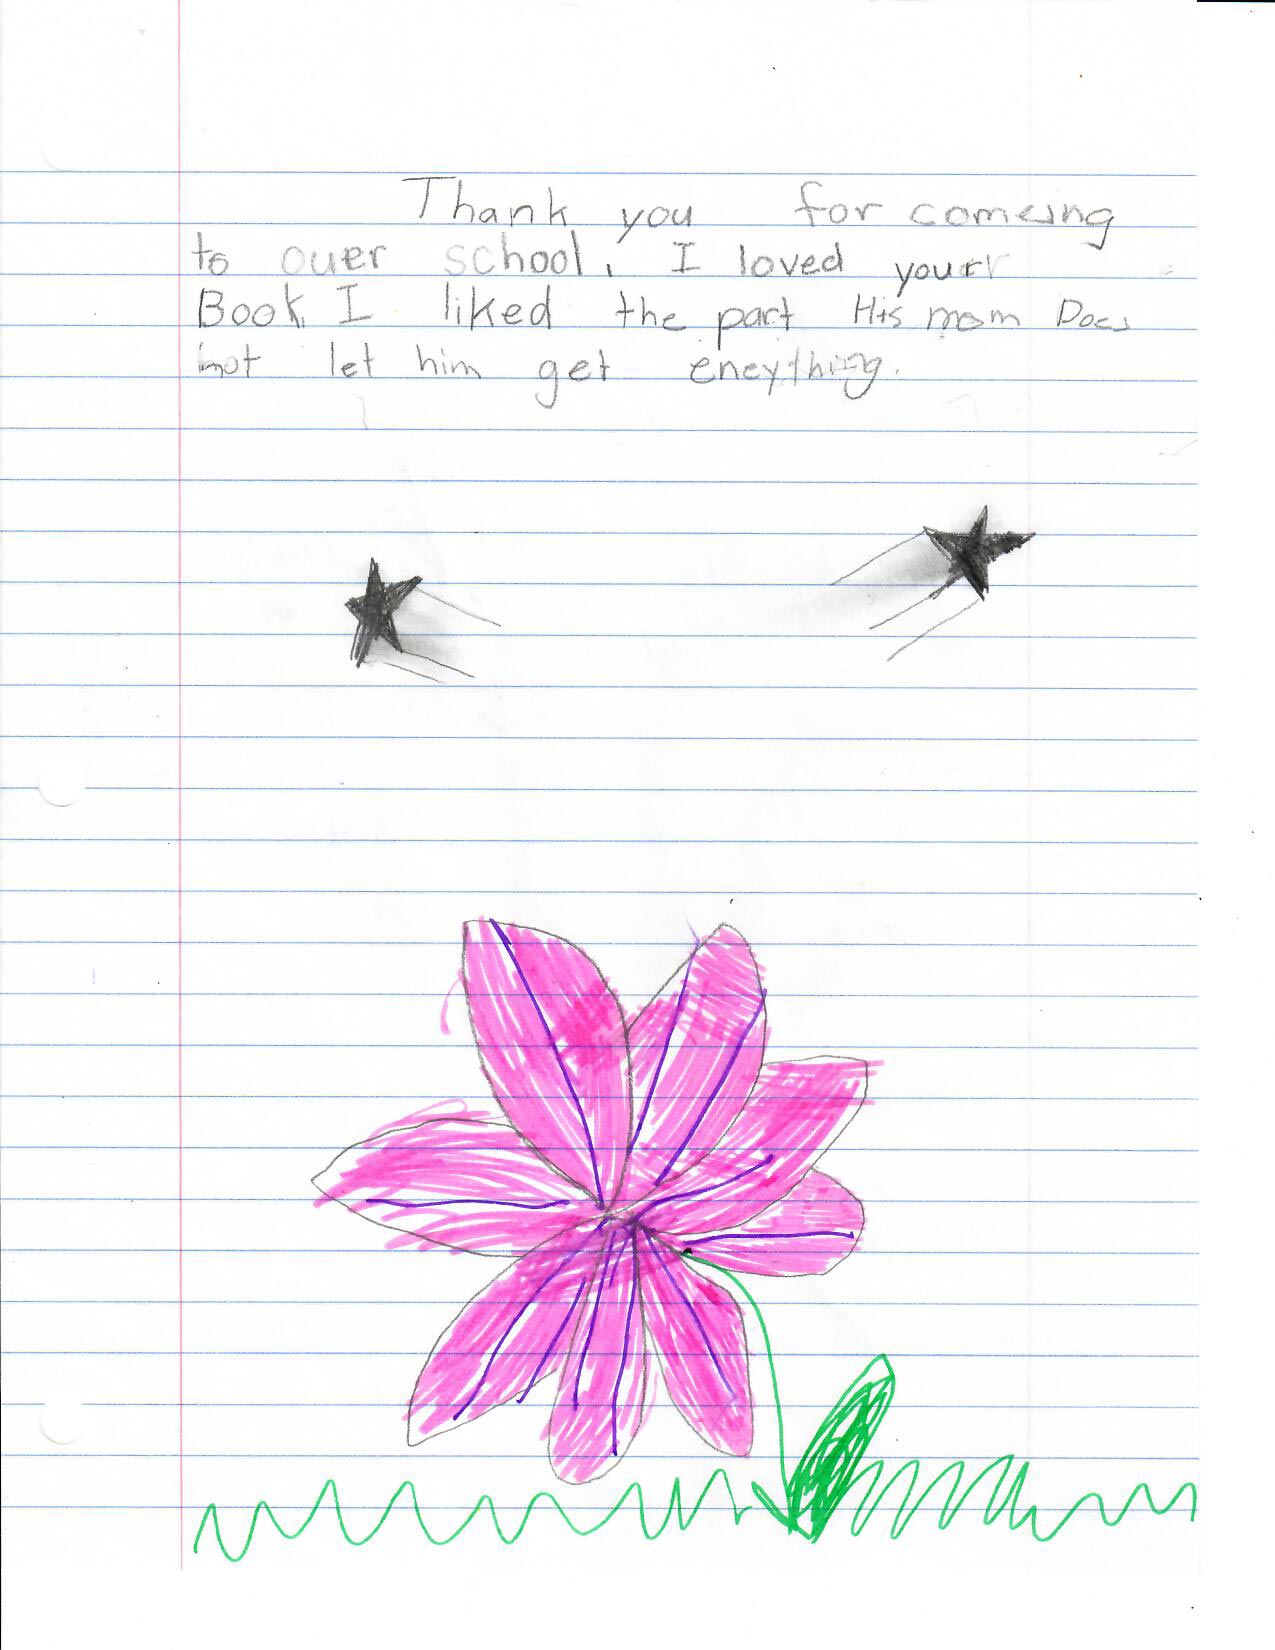 Thank you for comeing
to ouer school. I loved your
Book. I liked the part His mom Does
not let him get eneything.